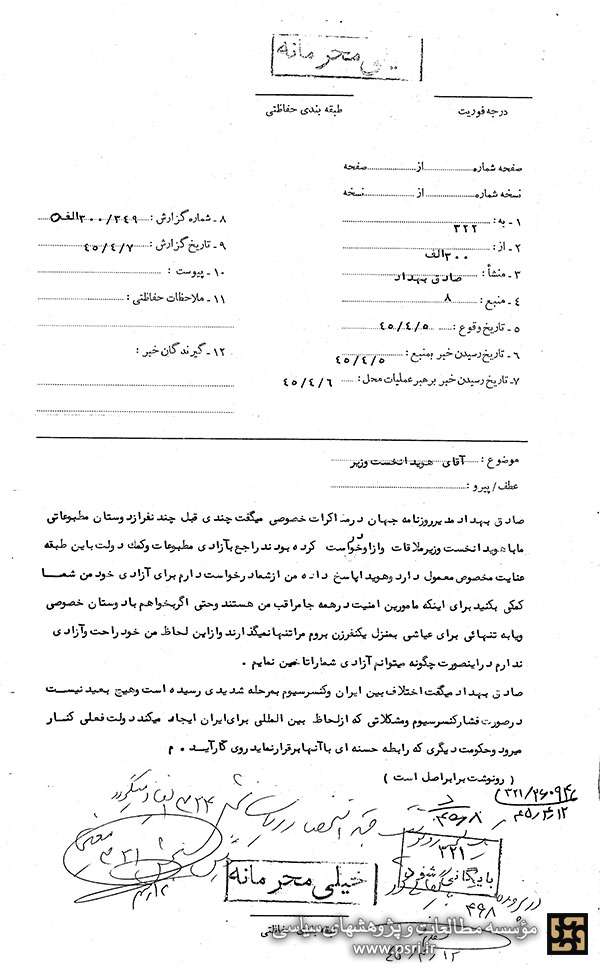 خیلی محرمانه
درجه فوریت
طبقه بندی حفاظتی
صفحه شماره........از........صفحه
نسخه شماره........از........نسخه
۱ - به : ۳۲۲
۲ - از : ۳۰۰الف
۳ - منشأ : صادق بهداد
۴ - منبع : ۸
۵ - تاریخ وقوع : ۴۵/۴/۵
۶ - تاریخ رسیدن خبر بمنبع : ۴۵/۴/۵
۷ - تاریخ رسیدن خبر برهبر عملیات محل : ۴۵/۴/۶
۸ - شماره گزارش : ۳۰۰/۳۴۹الف
۹ - تاریخ گزارش : ۴۵/۴/۷
۱۰ - پیوست :
۱۱ - ملاحظات حفاظتی :
۱۲ - گیرندگان خبر :
موضوع : آقای هویدا نخست وزیر
عطف / پیرو :
صادق بهداد مدیر روزنامه جهان در مذاکرات خصوصی میگفت چندی قبل چند نفر از دوستان مطبوعاتی
ما با هویدا نخست وزیر ملاقات و از او درخواست کرده بودند راجع بآزادی مطبوعات و کمک دولت باین طبقه
عنایت مخصوص معمول دارد و هویدا پاسخ داده من از شما درخواست دارم برای آزادی خود من شما
کمکی بکنید برای اینکه مامورین امنیت در همه جا مراقب من هستند و حتی اگر بخواهم با دوستان خصوصی
و یا به تنهائی برای عیاشی بمنزل یکنفر زن بروم مرا تنها نمیگذارند و از این لحاظ من خود راحت و آزادی
ندارم در اینصورت چگونه میتوانم آزادی شما را تامین نمایم .
صادق بهداد میگفت اختلاف بین ایران و کنسرسیوم بمرحله شدیدی رسیده است و هیچ بعید نیست
در صورت فشار کنسرسیوم و مشکلاتی که از لحاظ بین المللی برای ایران ایجاد میکند دولت فعلی کنار
میرود و حکومت دیگری که رابطه حسنه ای با آنها برقرار نماید روی کار آید . م
( رونوشت برابر اصل است )
۳۲۱
بایگانی شود
خیلی محرمانه
طبقه بندی حفاظتی
مؤسسه مطالعات و پژوهشهای سیاسی
www.psri.ir